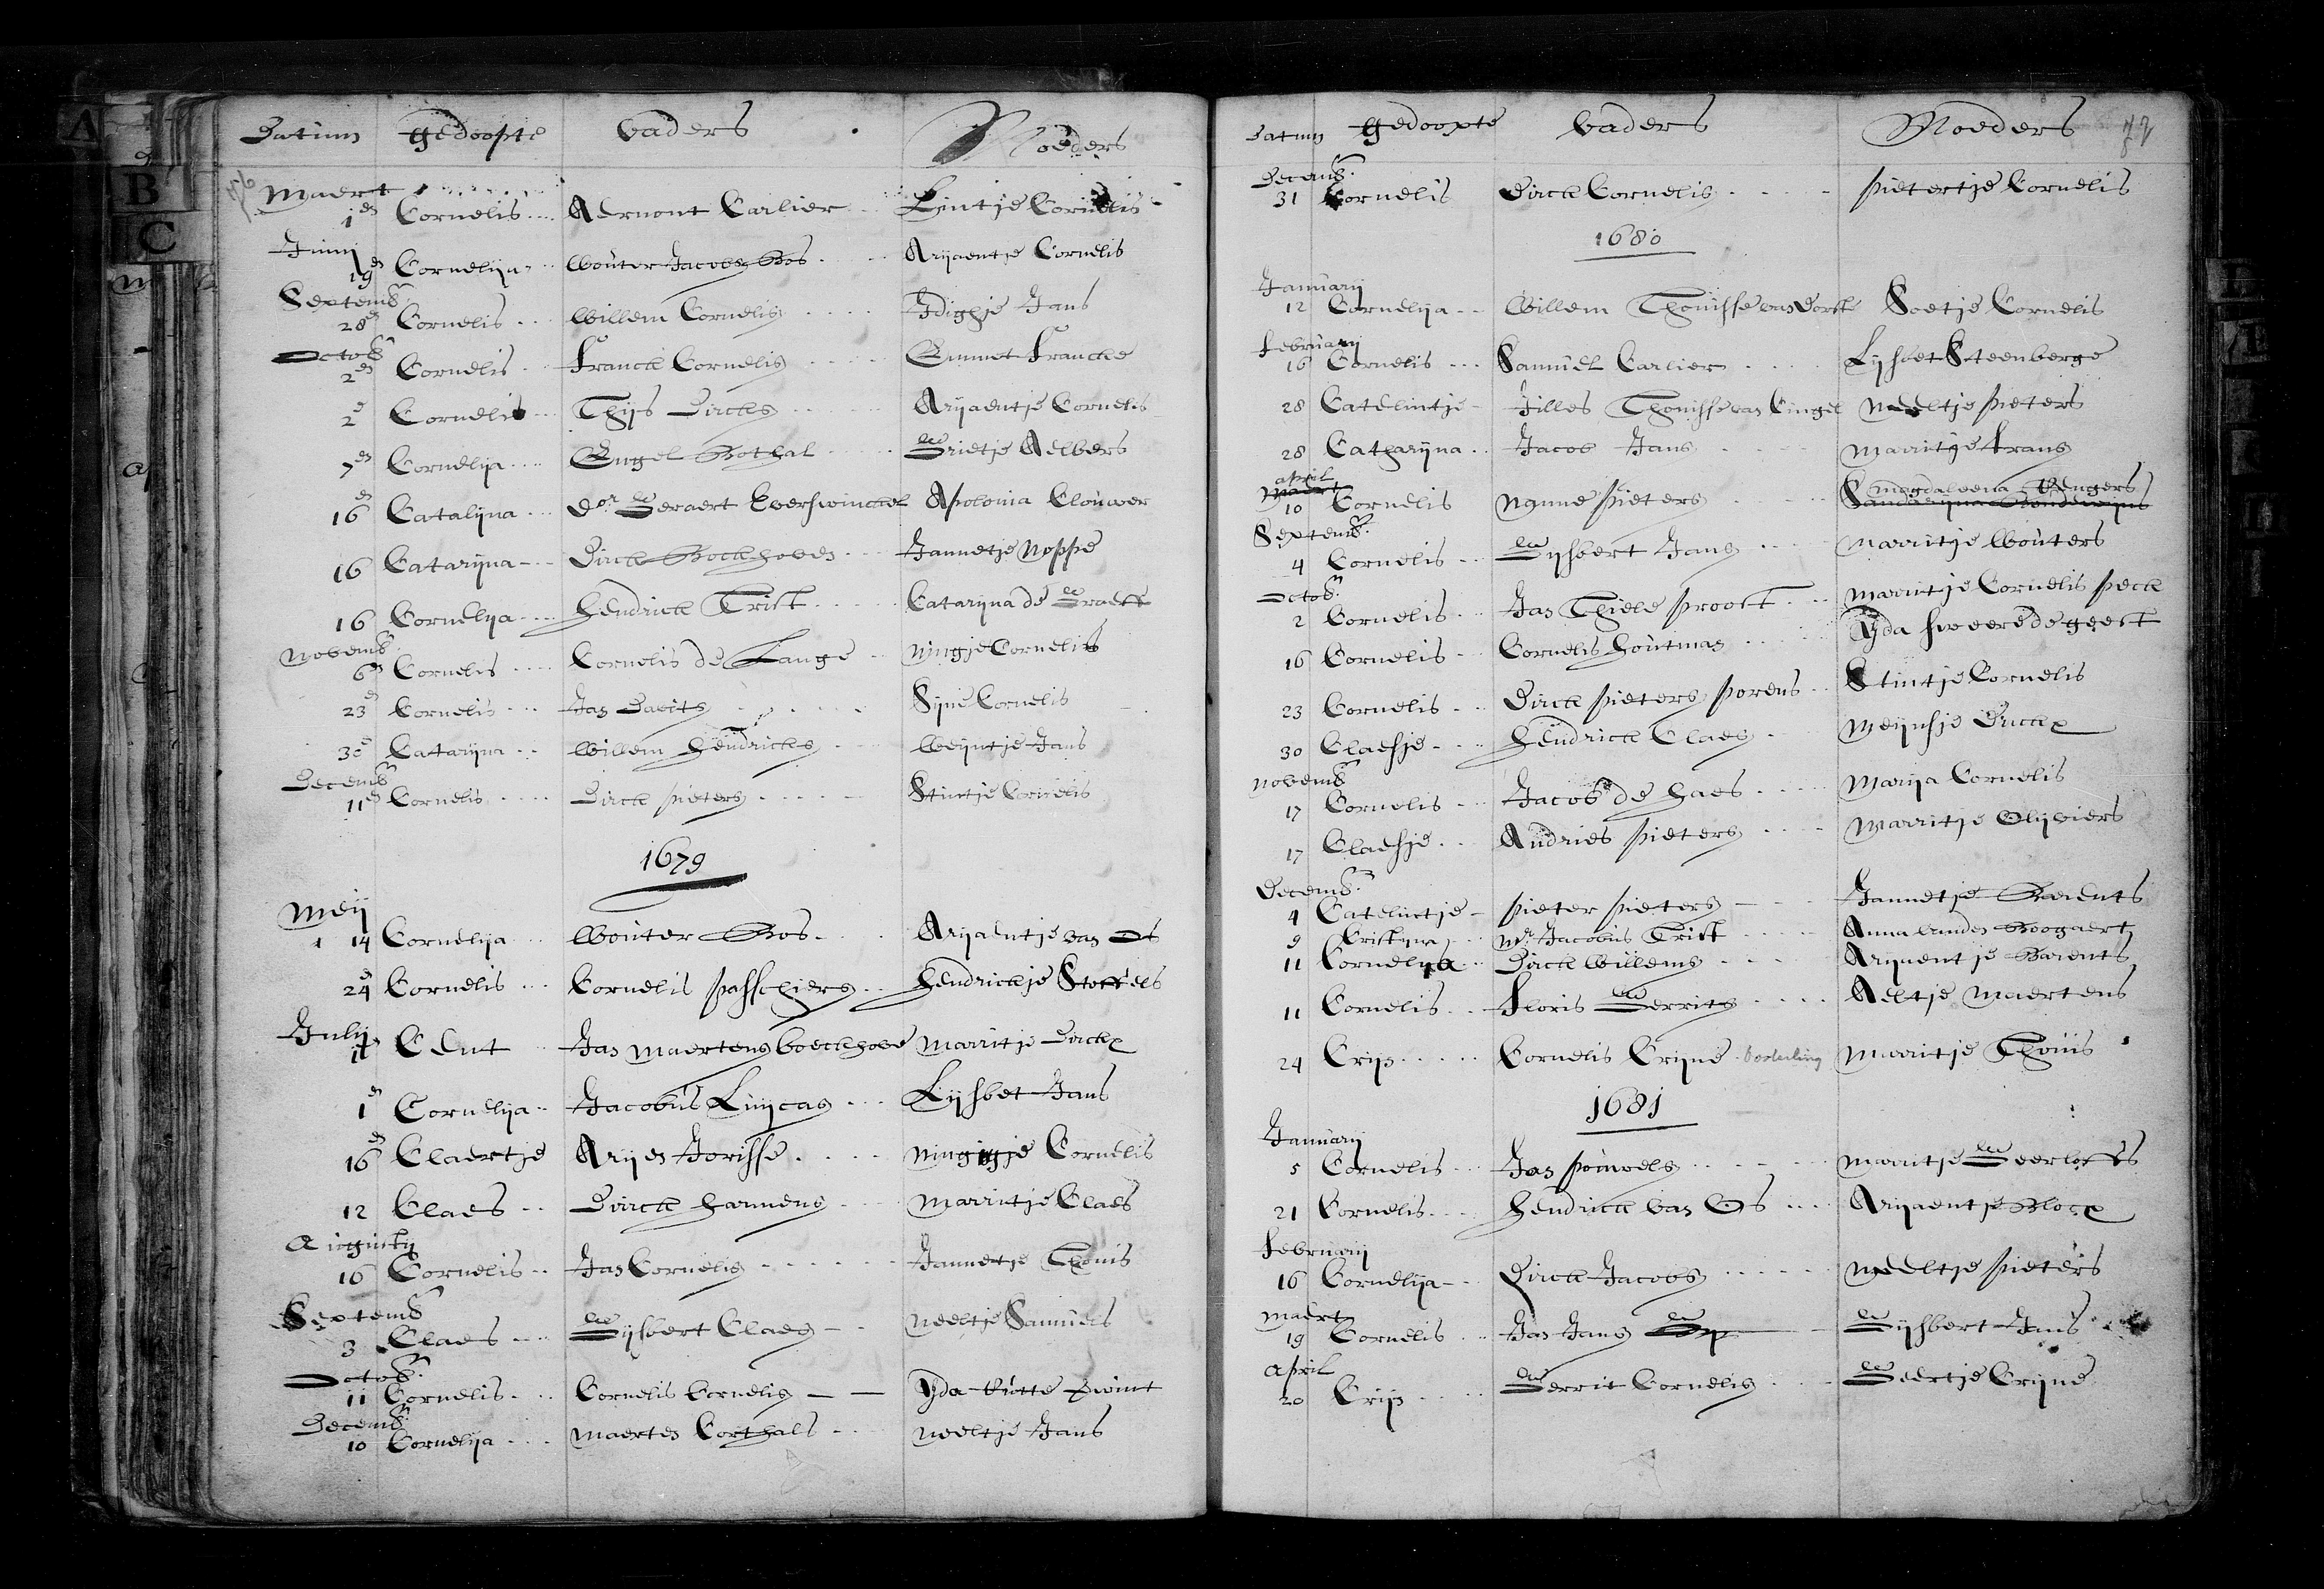 A
B
C
76
Datum gedoopte vaders Moeders
Maert
1en Cornelis Aernont Carlier Lintje Cornelis
Junij
19en Cornelija Wouter Jacobs Bos Arijaentje Cornelis
Septemb
28en Cornelis Willem Cornelis Idighje Jans
Octob
2en Cornelis Franck Cornelis Emmet Francke
2e Cornelis Thijs Dircks Arijaentje Cornelis
7en Cornelija Engel Bothal Grietje Aelbers
16en Catalijna Dor Geraert Everswinckel Apolonia Clouwer
16 Catarijna Dirck Bockhoven Jannetje Noppe
16 Cornelija Hendrick Trist Catarijna de Graeff
Novemb
6en Cornelis Cornelis de Lange Ningje Cornelis
23e Cornelis Jan Davits Sijne Cornelis
30e Catarijna Willem Hendricks Weijntje Jans
Decemb
11en Cornelis Dirck pieters Stintje Cornelis
1679
Meij
14 Cornelija Wouter Bos Arijaentje van Os
24e Cornelis Cornelis passchiers Hendrickje Stoffels
Julij
1en Cent Jan Maertens boeckhove Marritje Dirckx
1en Cornelija Jacobus Luijcas Lijsbet Jans
16en Claertje Arijen Jorisse Ningje Cornelis
12 Claes Dirck Harmens Marritje Claes
Augusty
16 Cornelis Jan Cornelis Jannetje Thonis
Septemb
3 Claes Gijsbert Claes Neeltje Samuels
Octob
11 Cornelis Cornelis Cornelis Ijda Rutte
Decemb
10 Cornelija Maerten Corthals Neeltje Jans
Datum gedoopte vaders Moeders 77
Decemb
31 Cornelis Dirck Cornelis pietertje Cornelis
1680
Januarij
12 Cornelija Willem Thonisse van Dorst Soetje Cornelis
februarij
16 Cornelis Samuel Carlier Lijsbet Steenberge
28 Catelintje Jilles Thonisse van Cingel Neeltje pieters
28 Catharijna Jacob Jans Marritje frans
april
Maert Magdaleena Rengers
10 Cornelis Nanne pieters
Septemb
4 Cornelis Gijsbert Jans Marritje Wouters
Octob
2 Cornelis Jan Thiele proost Marritje Cornelis peck
16 Cornelis Cornelis Houtman Ijda sweere de geest
23 Cornelis Dirck pieters porens Stintje Cornelis
30 Claesje Hendrick Claes Meijnsje Dirckx
Novemb
17 Cornelis Jacob de Haes Marija Cornelis
17 Claesje Andries pieters Marritje Olijviers
Decemb
4 Catelintje pieter pieters Jannetje Barents
9 Cristina Mr Jacobus Trist Anna vanden Boogaert
11 Cornelija Dirck Willems Arijaentje Barents
11 Cornelis Floris Gerrits Aeltje Maertens
24 Crijn Cornelis Crijne Marritje Thonis
1681
Januarij
5 Cornelis Jan pouwels Marritje Geerloffs
21 Cornelis Hendrick van Os Arijaentje Blocx
februarij
16 Cornelija Dirck Jacobs Neeltje pieters
Maert
19 Cornelis Jan Jans Gijsbert Jans
april
20 Crijn Gerrit Cornelis Geertje Crijne